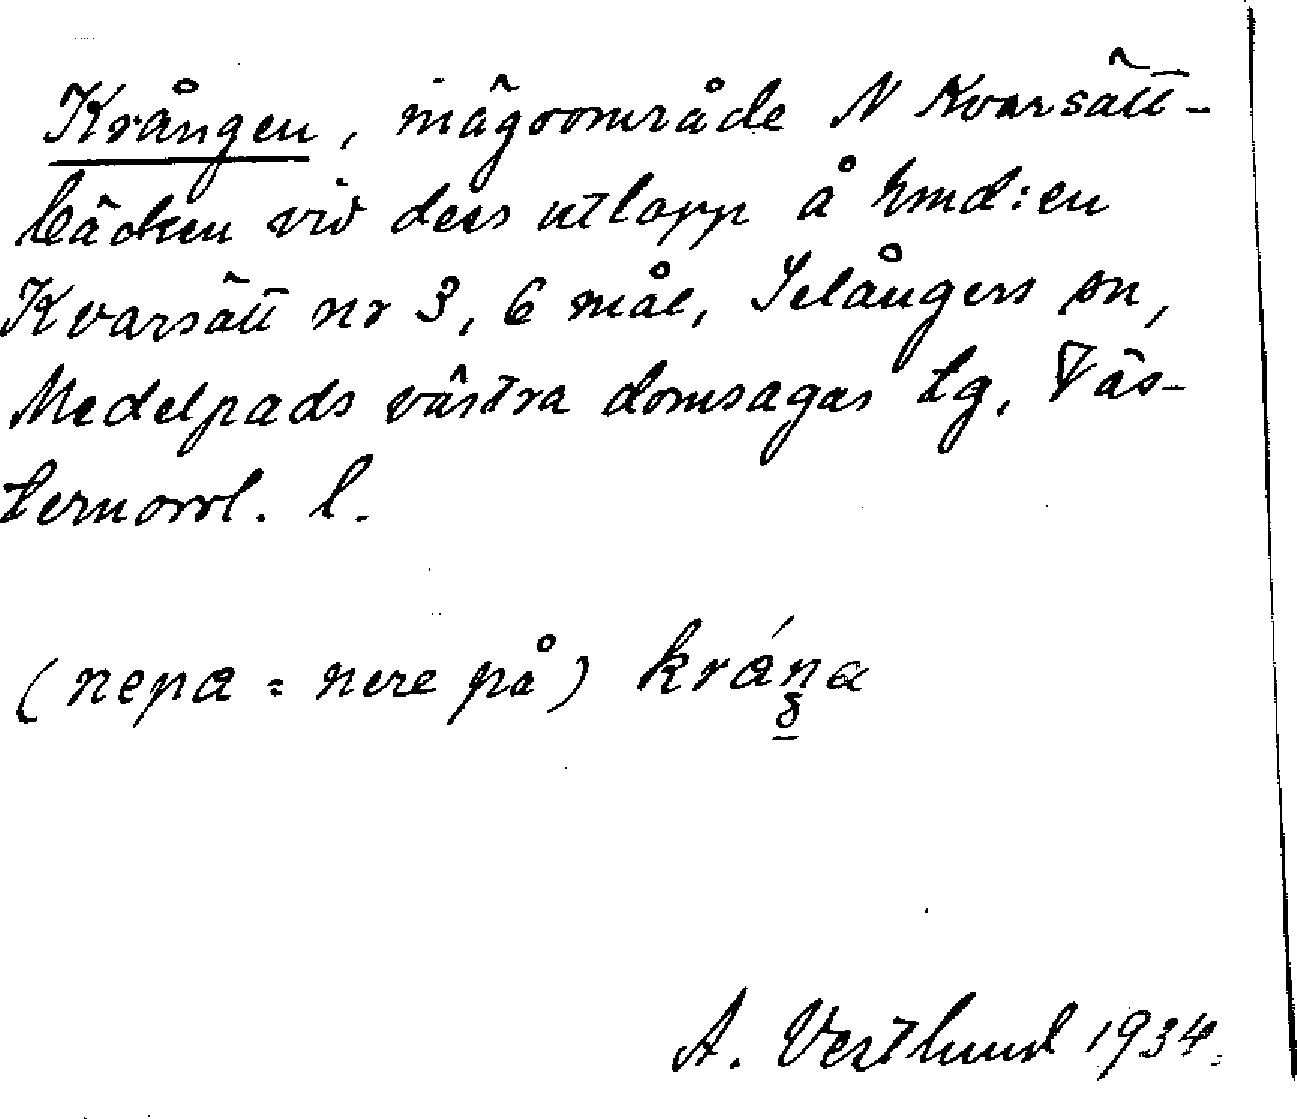 Krången, mägoområde N Kvarsätt-
bäcken vid dess utlopp å hmd:en
Kvarsätt nr 3, 6 mål, Selångers sn,
Medelpads västra domsagas tg, Väs-
ternorrl. l.
(nepa = nere på)
A. Vestlund 1934.